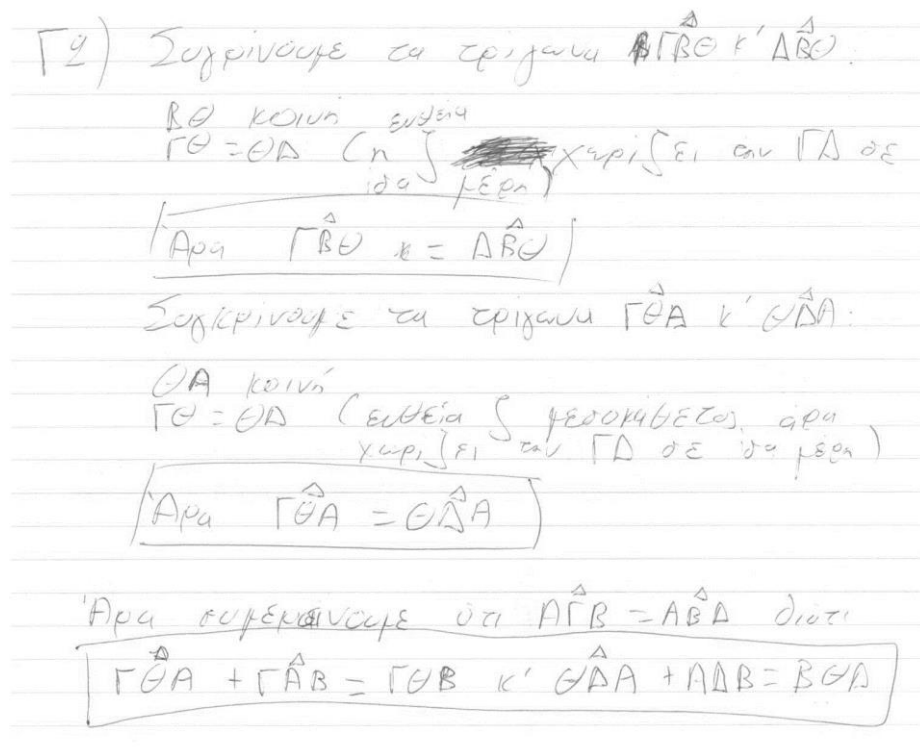 Γ2) Συγρίνουμε τα τρίγωνα ΓΒ̂Θ κ' ΔΒ̂Θ.
ΒΘ κοινή ευθεία
ΓΘ = ΘΔ (η ζ χωρίζει την ΓΔ σε
ίσα μέρη)
Άρα ΓΒ̂Θ = ΔΒ̂Θ
Συγκρίνουμε τα τρίγωνα ΓΘ̂Α κ' ΘΔ̂Α:
ΘΑ κοινή
ΓΘ = ΘΔ (ευθεία ζ μεσοκάθετος, άρα
χωρίζει την ΓΔ σε ίσα μέρη)
Άρα ΓΘ̂Α = ΘΔ̂Α
Άρα ότι ΑΓ̂Β = ΑΒ̂Δ διότι
ΓΘ̂Α + ΓΑ̂Β = ΓΘΒ κ' ΘΔ̂Α + ΑΔΒ = ΒΘΔ